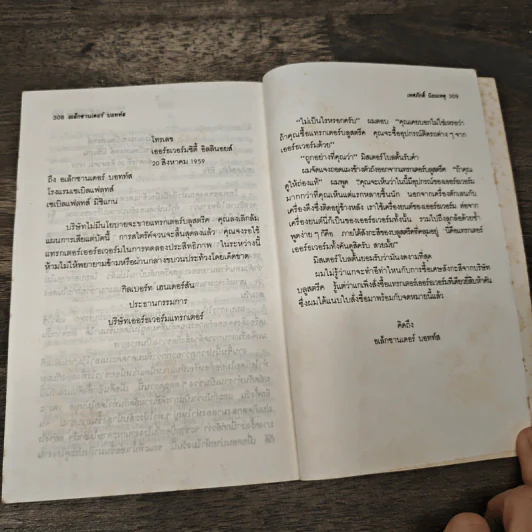 308 อเล็กซานเดอร์ บอทท์ส
โทรเลข
เออร์ธเวอร์มซิตี้ อิลลินอยส์
20 สิงหาคม 1959
ถึง อเล็กซานเดอร์ บอทท์ส
โรงแรมเซเบิลแฟลทส์
เซเบิลแฟลทส์ มิชิแกน
บริษัทไม่มีนโยบายจะขายแทรกเตอร์บลูสตรีค คุณลงเลิกล้ม
แผนการเสียแต่บัดนี้ การสไตร๊ค์จวนจะสิ้นสุดลงแล้ว คุณจงรอใช้
แทรกเตอร์เออร์ธเวอร์มในการทดลองประสิทธิภาพ ในระหว่างนี้
ห้ามไม่ให้พยายามข้ามหรือผ่านกลางขบวนประท้วงโดยเด็ดขาด
กิลเบอร์ท เฮนเดอร์สัน
ประธานกรรมการ
บริษัทเออร์ธเวอร์มแทรกเตอร์
เทศภักดิ์ นิยมเหตุ 309
"ไม่เป็นไรหรอกครับ" ผมตอบ "คุณเคยบอกไม่ใช่เหรอว่า
ถ้าคุณซื้อแทรกเตอร์บลูสตรีค คุณจะซื้ออุปกรณ์ติดรถต่าง ๆ จาก
เออร์ธเวอร์มด้วย"
"ถูกอย่างที่คุณว่า" มิสเตอร์ไบลตั้นรับคำ
ผมจัดแจงถอดแผงข้างตัวถังออกจากแทรกเตอร์บลูสตรีค "ถ้าคุณ
ดูให้ถ่องแท้" ผมพูด "คุณจะเห็นว่าในนี้มีอุปกรณ์ของเออร์ธเวอร์ม
มากกว่าที่คุณเห็นแต่แรกหลายชิ้นนัก นอกจากเครื่องตักเลนกับ
เครื่องดึงซึ่งติดอยู่ข้างหลัง เราใช้เครื่องยนต์ของเออร์ธเวอร์ม ต่อจาก
เครื่องยนต์นี้ก็เป็นของเออร์ธเวอร์มทั้งนั้น รวมไปถึงลูกล้อด้วยซ้ำ
พูดง่าย ๆ ก็คือ ภายใต้สังกะสีของบลูสตรีคที่คลุมอยู่ นี่คือแทรกเตอร์
เออร์ธเวอร์มทั้งคันดุ้คิดรับ สวยมั้ย"
มิสเตอร์ไบลตั้นยอมรับว่ามันงดงามที่สุด
ผมไม่รู้ว่าแกจะทำอีท่าไหนกับการซื้อเศษสังกะสีจากบริษัท
บลูสตรีค รู้แต่ว่าแกเพิ่งสั่งซื้อแทรกเตอร์เออร์ธเวอร์มทีเดียวยี่สิบห้าคัน
ซึ่งผมได้แนบใบสั่งซื้อมาพร้อมกับจดหมายนี้แล้ว
คิดถึง
อเล็กซานเดอร์ บอทท์ส